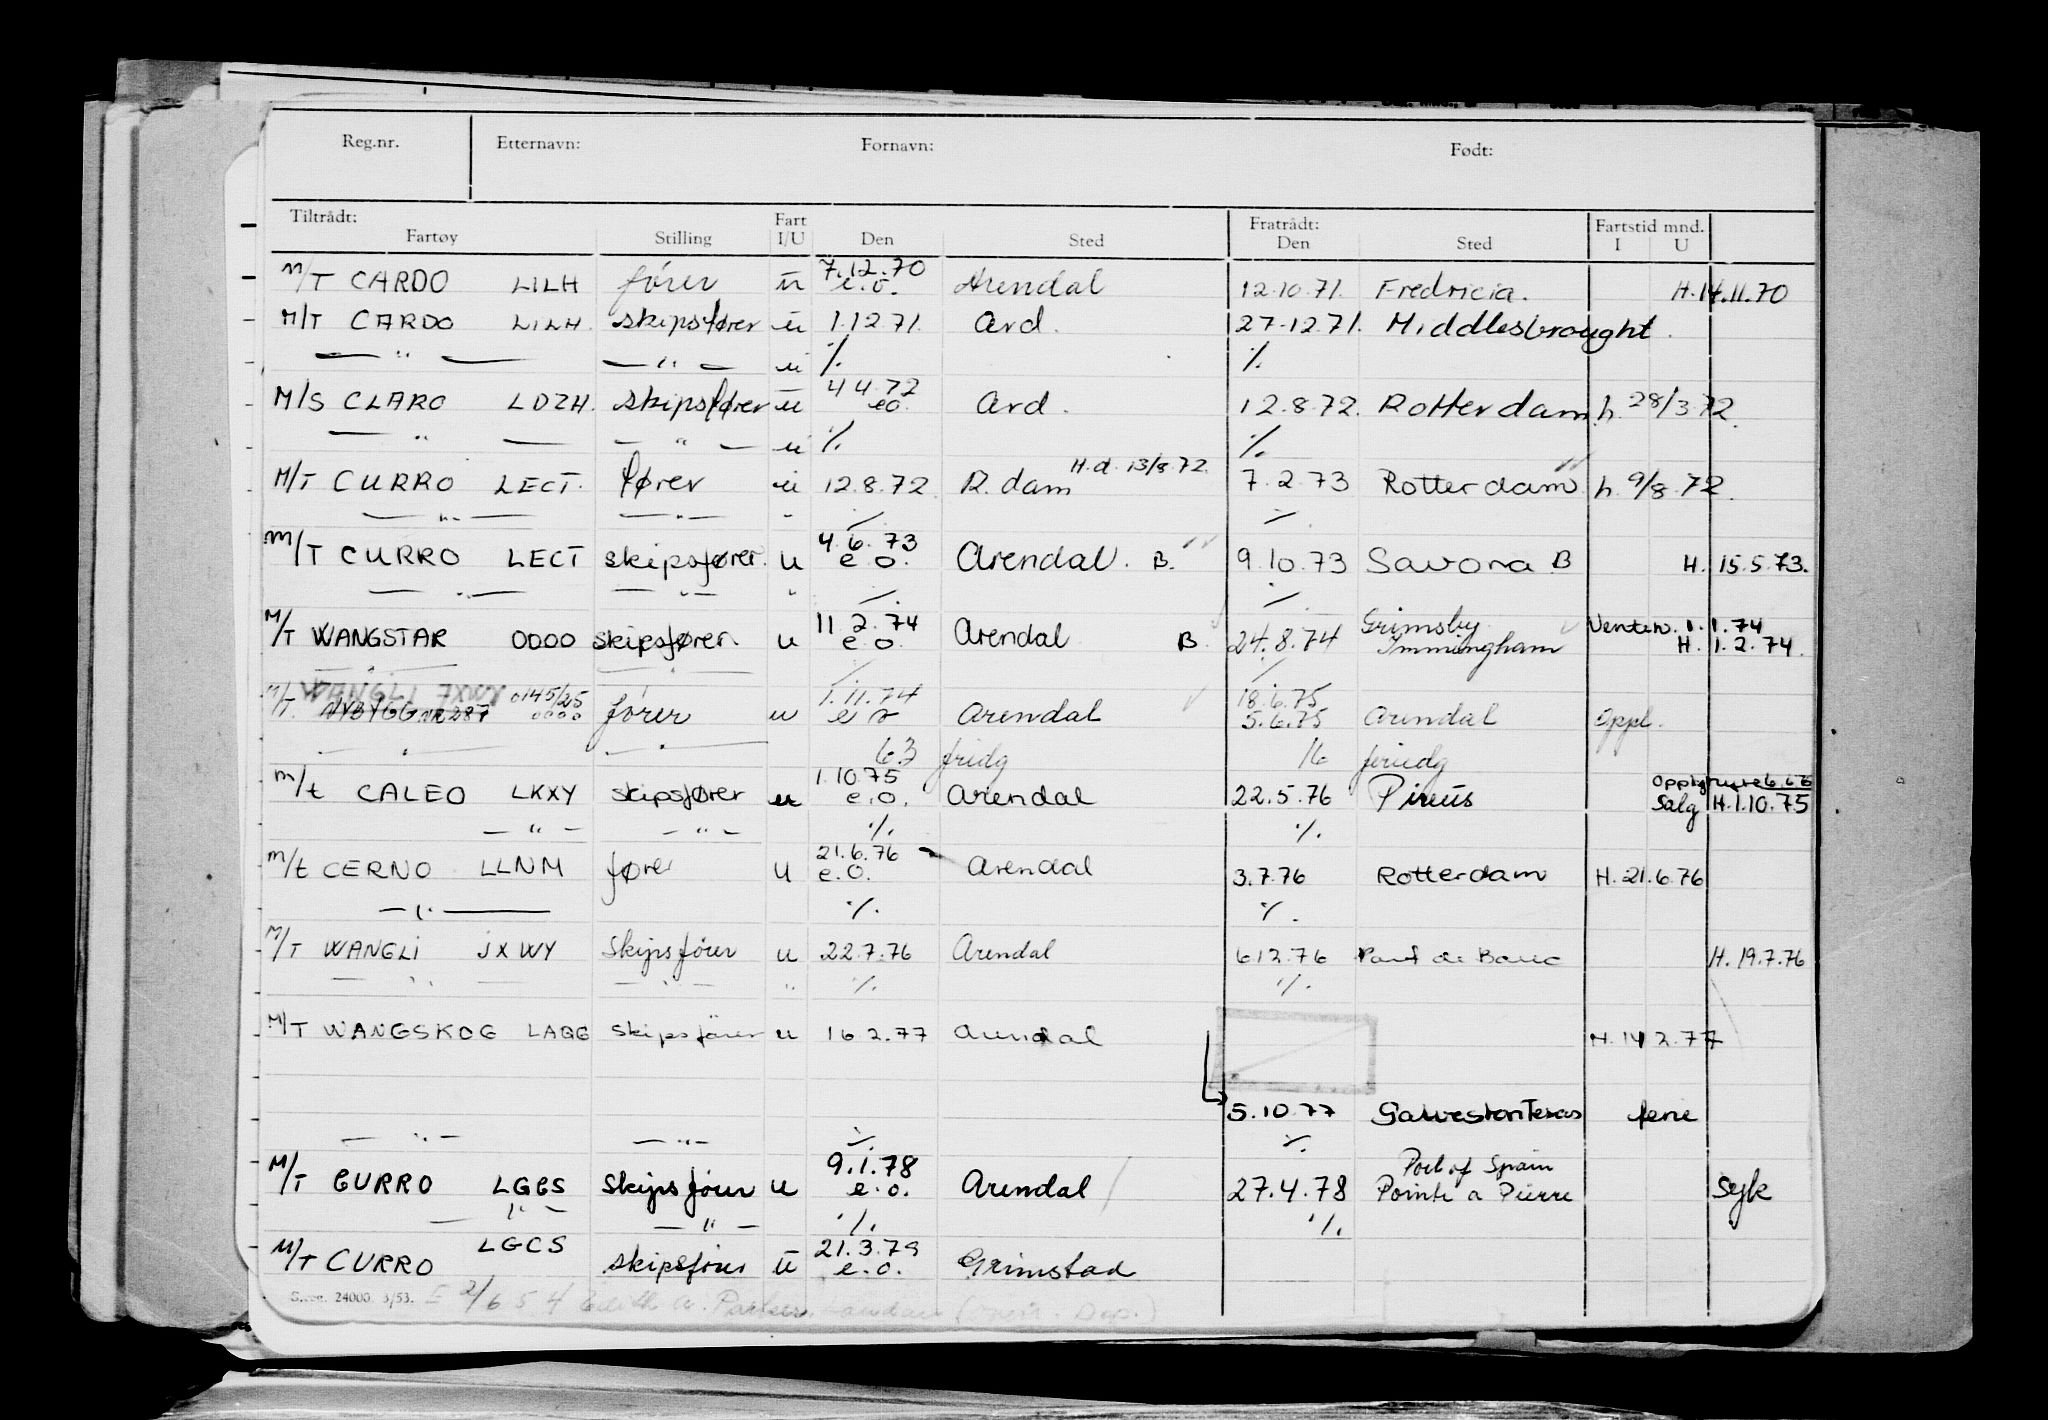 Reg.nr. Etternavn: Fornavn: Født:
Tiltrådt: Fart Fratrådt: Fartstid mnd.
Fartøy Stilling I/U Den Sted Den Sted I U
M/T CARDO LILH fører u 7.12.70 e.o. Arendal 12.10.71. Fredricia. H.14.11.70
M/T CARDO LILH. skipsfører u 1.12.71. Ard. 27.12.71. Middlesbrought.
— " — — " — u % %
M/S CLARO LDZH. skipsfører u 4.4.72 eo. Ard. 12.8.72. Rotterdam h. 28/3.72.
— " — — " — u % %
M/T CURRO LECT. fører u 12.8.72 R.dam H.d. 13/8.72. 7.2.73 Rotterdam h. 9/8.72.
— " — — " — " % %
M/T CURRO LECT skipsfører. u 4.6.73 e.o. Arendal. B. 9.10.73 Savona B H. 15.5.73.
— " — — " — " % %
M/T WANGSTAR 0000 skipsfører. u 11.2.74 e.o. Arendal B. 24.8.74 Grimsby Immingham Vented. 1.1.74 H. 1.2.74.
— " — — " — % %
M/T WANGLI JXWY 0145/25
NYBYGG NR 287 0000 fører u 1.11.74 e o Arendal 18.6.75 5.6.75 Arendal Oppl.
— " — — " — 63 fridg 16 feriedg
M/t CALEO LKXY skipsfører u 1.10.75 e.o. Arendal 22.5.76 Pireus Salg H.1.10.75
— " — — " — % %
M/t CERNO LLNM fører u 21.6.76 e.o. Arendal 3.7.76 Rotterdam H. 21.6.76
— " — % %
M/T WANGLI JXWY Skipsfører u 22.7.76 Arendal 6.12.76 Port de Bouc H. 19.7.76
— " — — " — " % %
M/T WANGSKOG LAGG skipsfører u 16.2.77 Arendal H. 14.2.77
5.10.77 Galveston Texas ferie
— " — — " — % %
M/T CURRO LGCS Skipsfører u 9.1.78 e.o. Arendal 27.4.78 Port of Spain Pointe a Pierre Syk
— " — — " — % %
M/T CURRO LGCS skipsfører u 21.3.79 e.o. Grimstad
24000. 3/53.